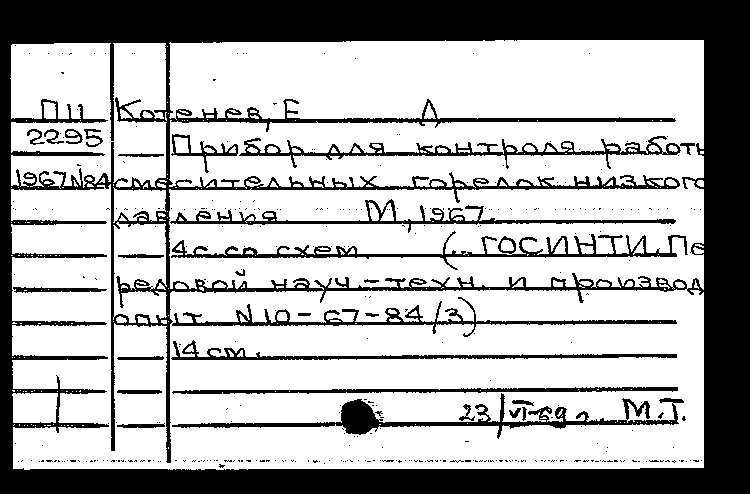 П11 Котенев, Е Д
2295 Прибор для контроля работы
1967N84 смесительных горелок низкого
давления. М, 1967.
4с. со схем. (... ГОСИНТИ. Пе
редовой науч.-техн. и производ
опыт. N10-67-84/3)
14 см.
23/VI-69 г. М.Т.